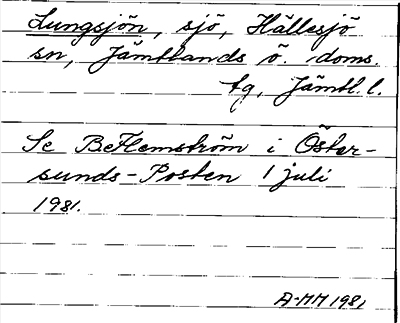 Lungsjön, sjö, Hällesjö
sn, Jämtlands ö. doms.
tg, Jämtl. l.
Se BeHemström i Öster-
sunds-Posten 1 juli
1981.
A-MM 1981